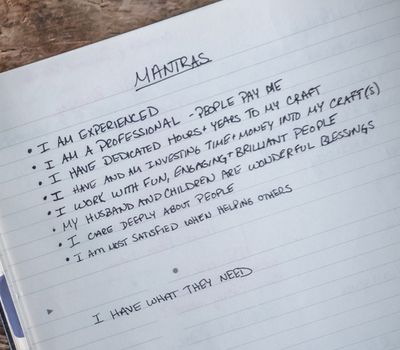 MANTRAS
• I AM EXPERIENCED
• I AM A PROFESSIONAL - PEOPLE PAY ME
• I HAVE DEDICATED HOURS + YEARS TO MY CRAFT
• I HAVE AND AM INVESTING TIME + MONEY INTO MY CRAFT(S)
• I WORK WITH FUN, ENGAGING + BRILLIANT PEOPLE
• MY HUSBAND AND CHILDREN ARE WONDERFUL BLESSINGS
• I CARE DEEPLY ABOUT PEOPLE
• I AM MOST SATISFIED WHEN HELPING OTHERS
I HAVE WHAT THEY NEED